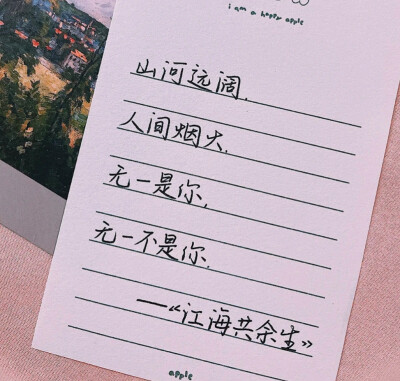 i am a happy apple
山河远阔.
人间烟火.
无一是你,
无一不是你.
——“江海共余生”
apple